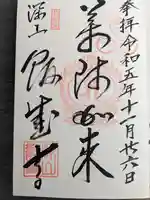 奉拝令和五年十一月廿六日
薬師如来
深山
飯盛寺